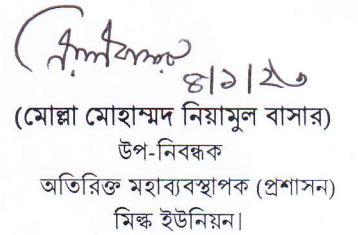 ৪|১|২৩
(মোল্লা মোহাম্মদ নিয়ামুল বাসার)
উপ-নিবন্ধক
অতিরিক্ত মহাব্যবস্থাপক (প্রশাসন)
মিল্ক ইউনিয়ন।